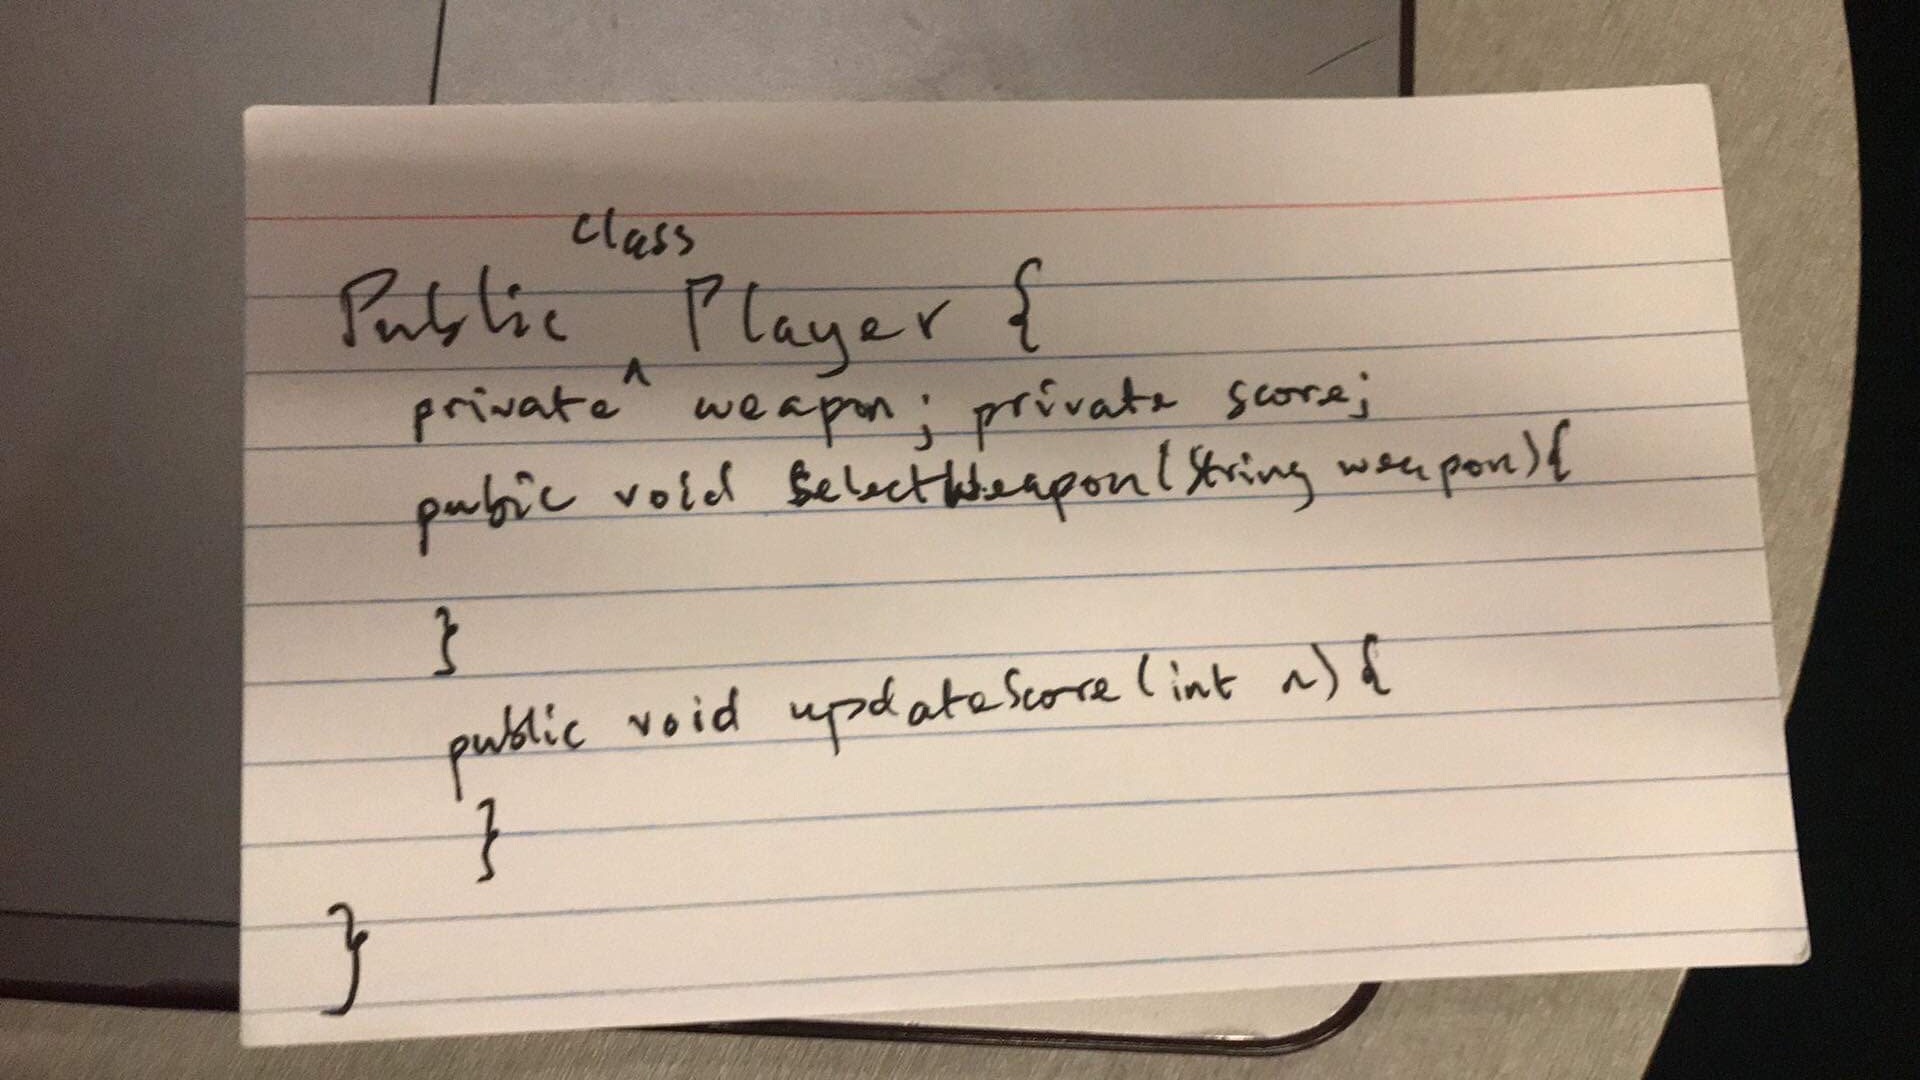 Public class Player {
private weapon; private score;
public void selectWeapon(String weapon){
}
public void updateScore(int n){
}
}